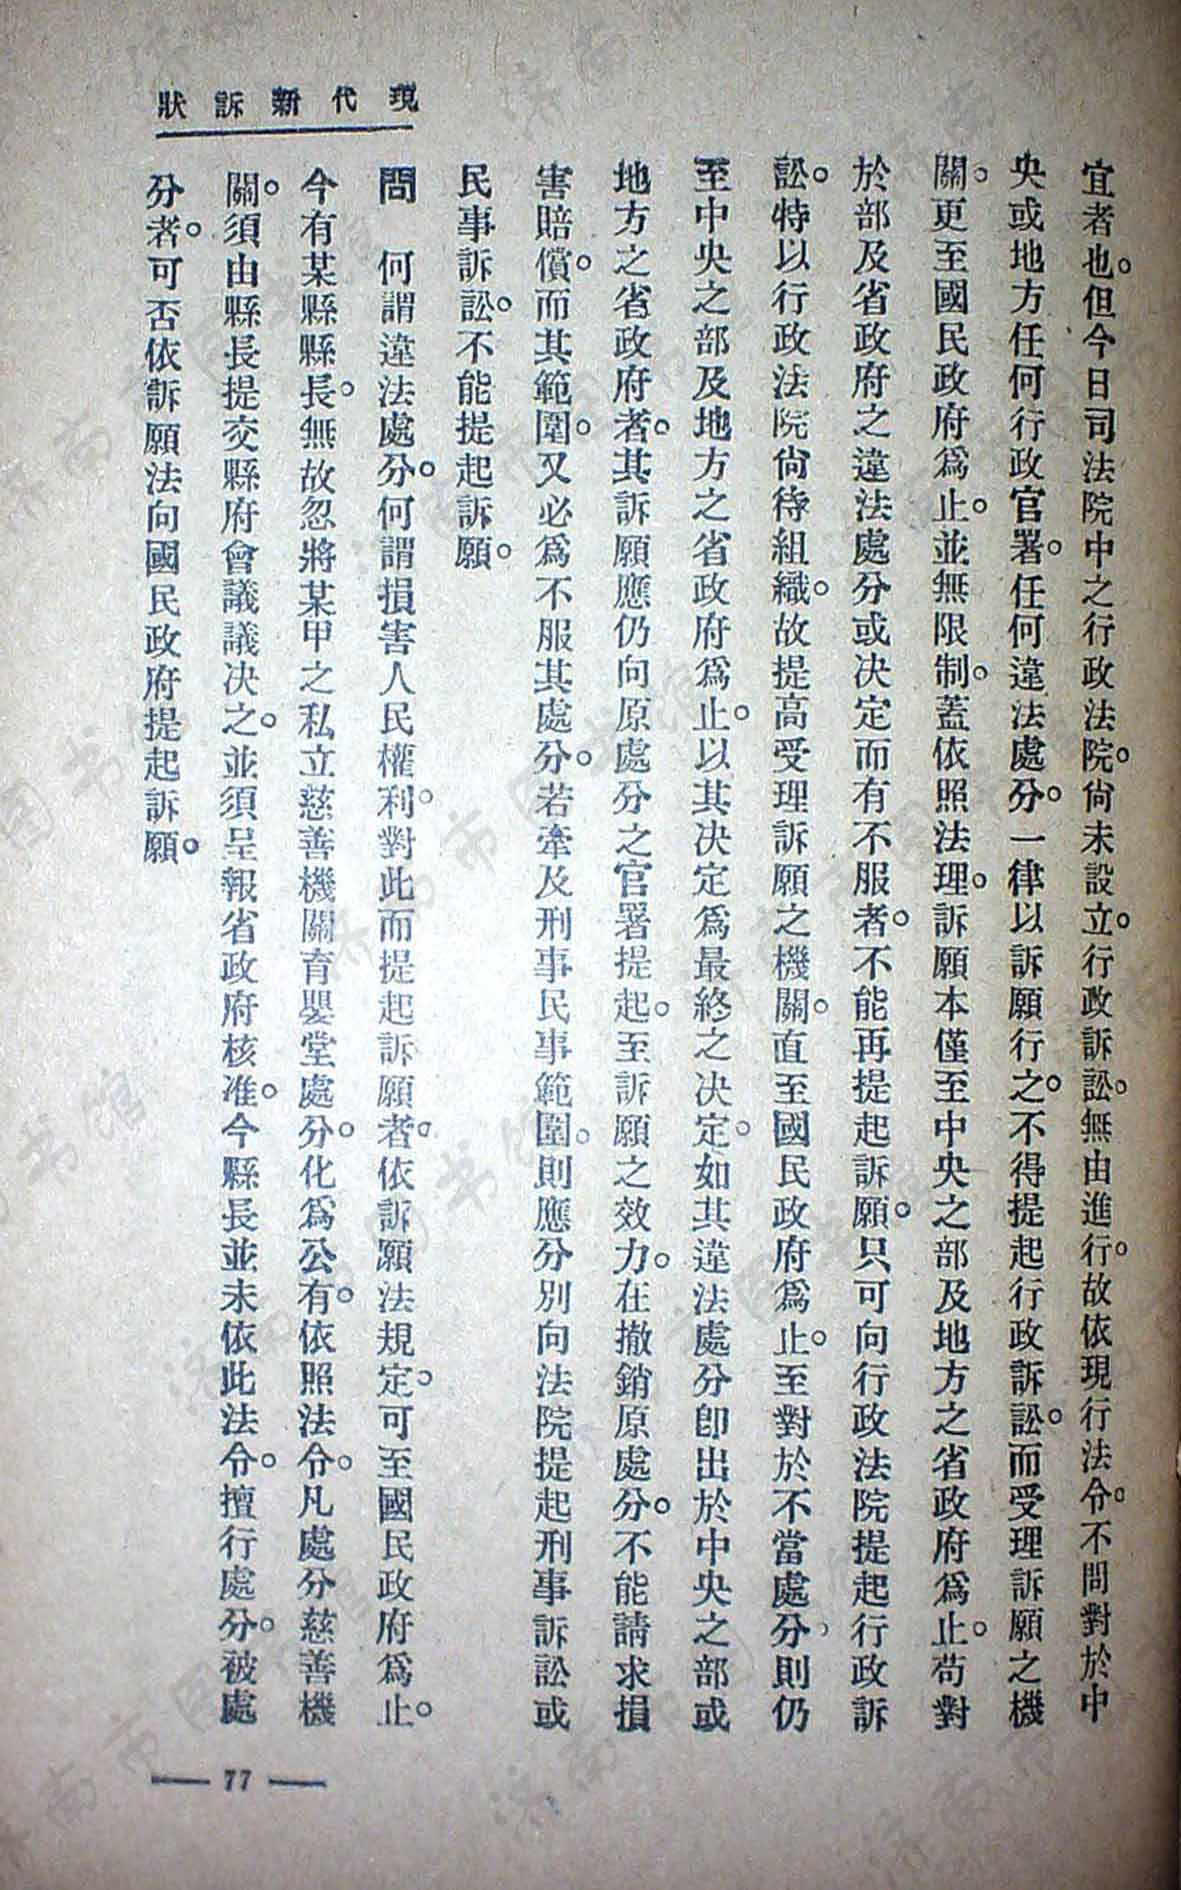 現代新訴狀
宜者也。但今日司法院中之行政法院。尙未設立。行政訴訟。無由進行。故依現行法令。不問對於中
央或地方任何行政官署。任何違法處分。一律以訴願行之。不得提起行政訴訟。而受理訴願之機
關。更至國民政府爲止。並無限制。蓋依照法理。訴願本僅至中央之部及地方之省政府爲止。苟對
於部及省政府之違法處分或決定而有不服者。不能再提起訴願。只可向行政法院提起行政訴
訟。特以行政法院尙待組織。故提高受理訴願之機關。直至國民政府爲止。至對於不當處分、則仍
至中央之部及地方之省政府爲止。以其決定爲最終之決定。如其違法處分卽出於中央之部或
地方之省政府者。其訴願應仍向原處分之官署提起。至訴願之效力。在撤銷原處分。不能請求損
害賠償。而其範圍。又必爲不服其處分。若牽及刑事民事範圍。則應分別向法院提起刑事訴訟或
民事訴訟。不能提起訴願。
問　何謂違法處分。何謂損害人民權利。對此而提起訴願者。依訴願法規定。可至國民政府爲止。
今有某縣縣長。無故忽將某甲之私立慈善機關育嬰堂處分。化爲公有。依照法令。凡處分慈善機
關。須由縣長提交縣府會議議決之。並須呈報省政府核准。今縣長並未依此法令。擅行處分。被處
分者。可否依訴願法向國民政府提起訴願。
— 77 —
济南市图书馆